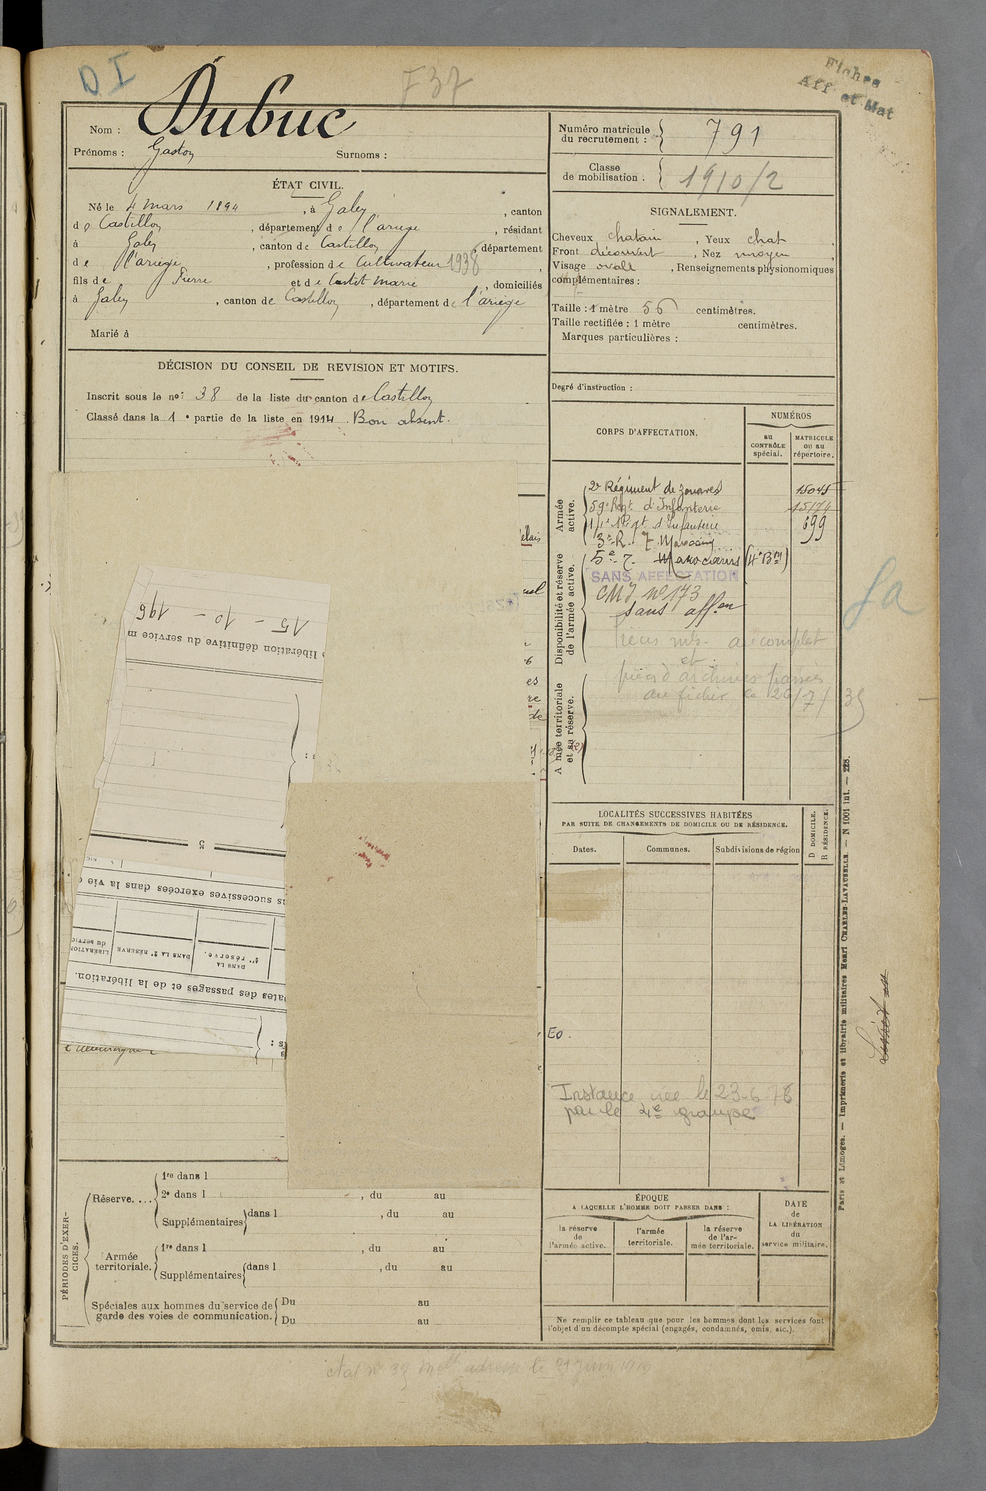 D I
F37
Fiches
Aff. et Mat
Nom : Dubuc
Prénoms : Gaston Surnoms :
ÉTAT CIVIL.
Né le 4 mars 1894, à Galey, canton
de Castillon, département de l'ariège, résidant
à Galey, canton de Castillon, département
de l'ariège, profession de Cultivateur 1938
fils de Pierre et de Castet Marie, domiciliés
à Galey, canton de Castillon, département de l'ariège
Marié à
DÉCISION DU CONSEIL DE REVISION ET MOTIFS.
Inscrit sous le no: 38 de la liste du canton de Castillon
Classé dans la 1e partie de la liste en 1914. Bon absent.
Numéro matricule
du recrutement : 791
Classe
de mobilisation. 1910/2
SIGNALEMENT.
Cheveux chatain, Yeux chat
Front découvert, Nez moyen
Visage ovale, Renseignements physionomiques
complémentaires :
Taille : 1 mètre 56 centimètres.
Taille rectifiée : 1 mètre centimètres.
Marques particulières :
Degré d'instruction :
CORPS D'AFFECTATION.
NUMÉROS
au
CONTRÔLE
spécial.
MATRICULE
ou au
répertoire.
Armée
active.
2e Régiment de zouaves 15045
59e Regt d'Infanterie 15174
14e Regt d'Infanterie 699
3e R. T. Marocains
Disponibilité et réserve
de l'armée active.
5e T. Marocains (4e Bon)
SANS AFFECTATION
CMJ no 173
sans affon
Pièces mts. au complet
et
pièces d'archives passées
au fichier le 26/7/35
Armée territoriale
et sa réserve.
Sa
15 - 10 - 196
libération définitive du service m
5
s successives exercées dans la vie c
DANS LA
1re réserve.
DANS LA 2e RÉSERVE
LIBÉRATION
du servic
Dates des passages et de la libération.
LOCALITÉS SUCCESSIVES HABITÉES
PAR SUITE DE CHANGEMENTS DE DOMICILE OU DE RÉSIDENCE.
Dates. Communes. Subdivisions de région
D DOMICILE.
R RÉSIDENCE.
Eo.
Instance créée le 23-6-78
par le 4e groupe
ÉPOQUE
A LAQUELLE L'HOMME DOIT PASSER DANS :
la réserve
de
l'armée active.
l'armée
territoriale.
la réserve
de l'ar-
mée territoriale.
DATE
de
LA LIBÉRATION
du
service militaire.
Ne remplir ce tableau que pour les hommes dont les services font
l'objet d'un décompte spécial (engagés, condamnés, omis, etc.).
PÉRIODES D'EXER-
CICES.
Réserve....
1re dans l
2e dans l , du au
Supplémentaires dans l , du au
Armée
territoriale.
1re dans l , du au
Supplémentaires dans l , du au
Spéciales aux hommes du service de
garde des voies de communication.
Du au
Du au
Paris et Limoges. — Imprimerie et librairie militaires Henri CHARLES-LAVAUZELLE. — N 1001 int. — 228.